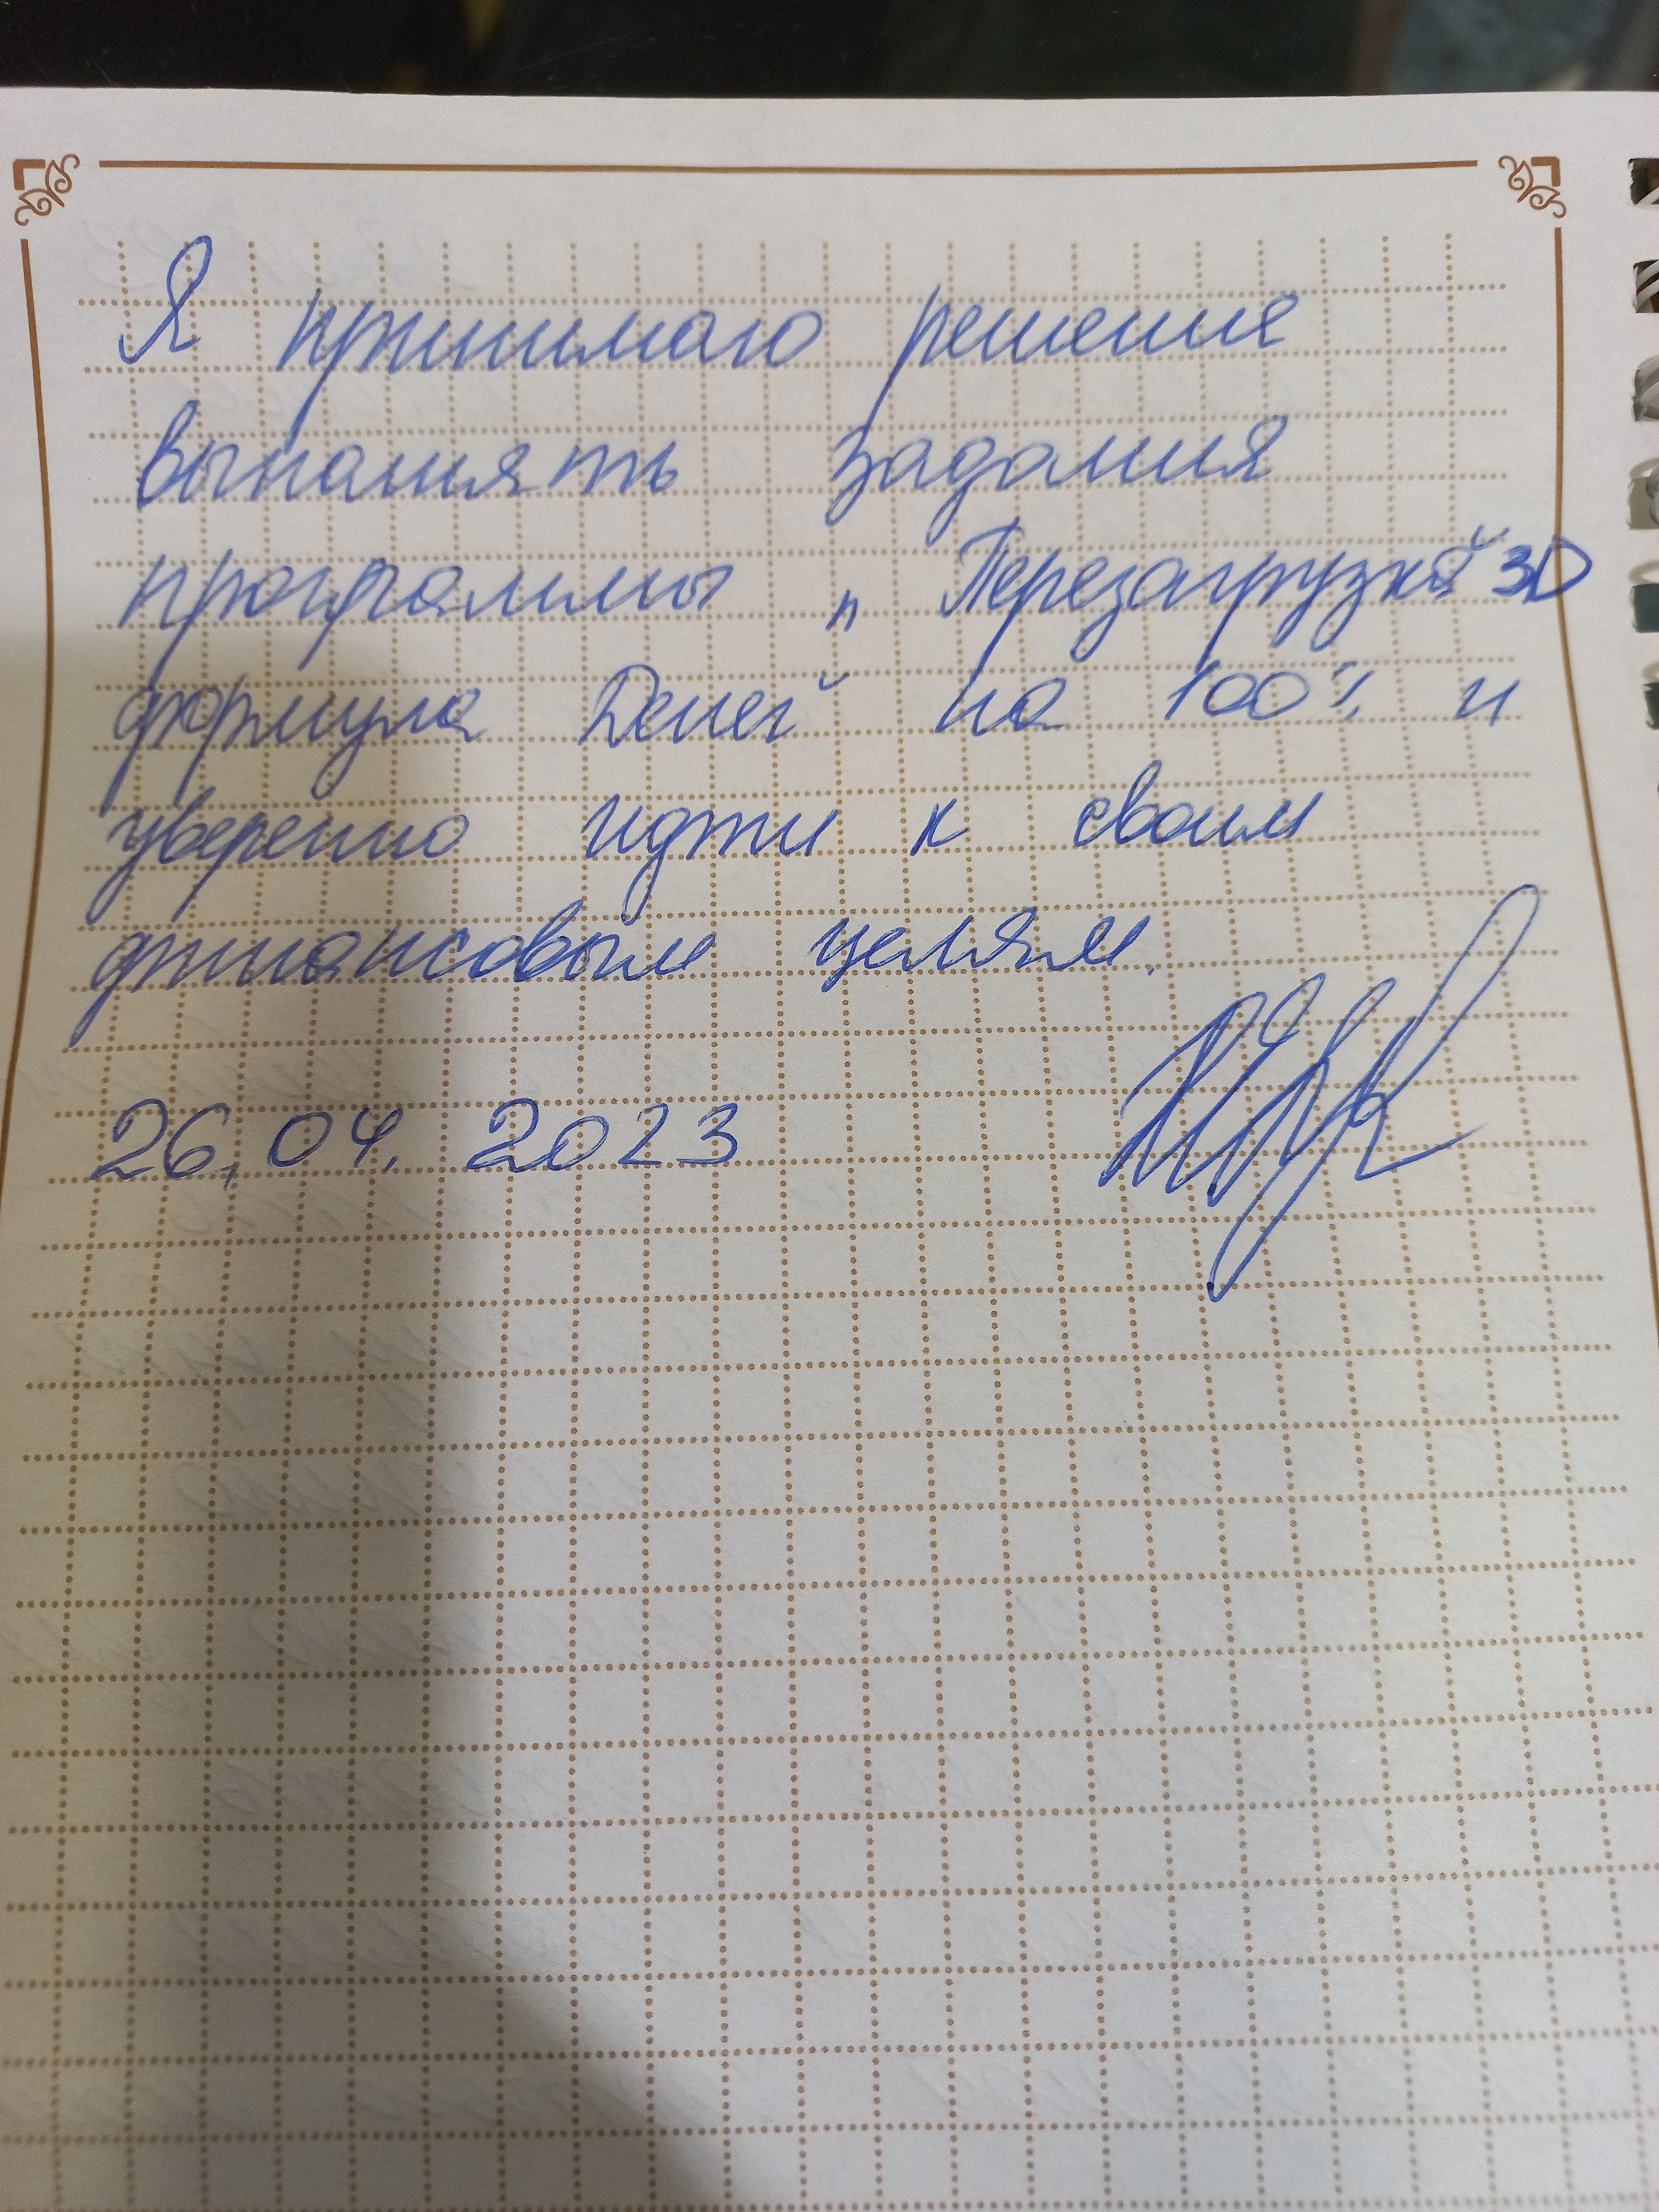 Я принимаю решение
выполнять задания
программы „Перезагрузка" 3D
формула Денег на 100% и
уверенно идти к своим
финансовым целям.
26.04. 2023